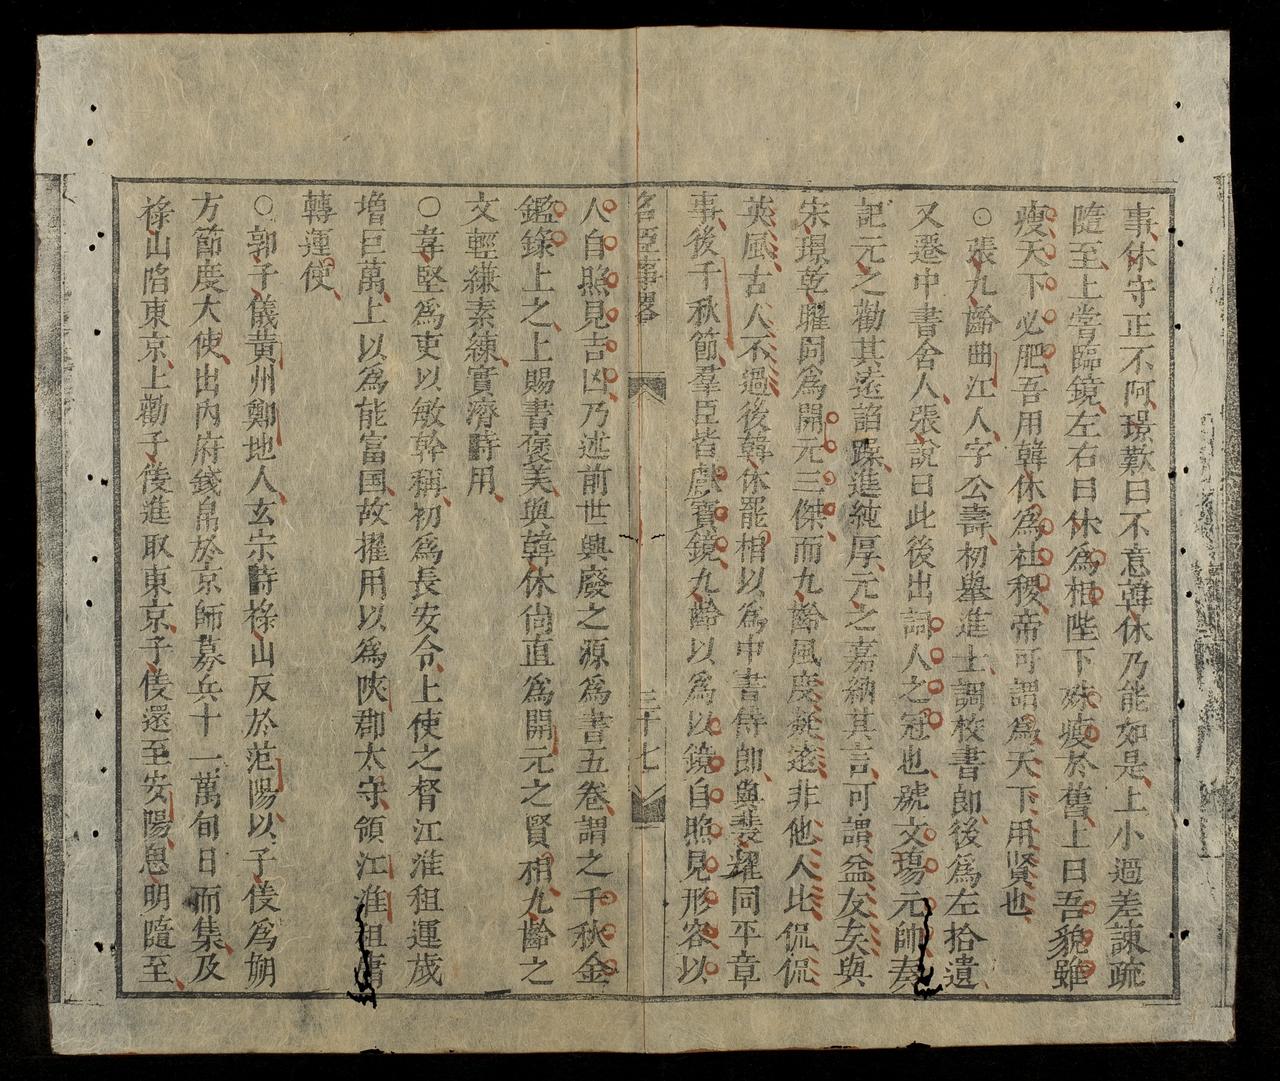 事休守正不阿璟歎曰不意韓休乃能如是上小過差諫疏
隨至上嘗臨鏡左右曰休爲相陛下殊瘦於舊上曰吾貌雖
瘦天下必肥吾用韓休爲社稷帝可謂爲天下用賢也
○張九齡曲江人字公壽初舉進士調校書郎後爲左拾遺
又遷中書舍人張說曰此後出詞人之冠也號文塲元帥奏
記元之勸其遠諂躁進純厚元之嘉納其言可謂益友矣與
宋璟乾曜同爲開元三傑而九齡風度凝遠非他人比侃侃
英風古人不過後韓休罷相以爲中書侍郎與裴耀同平章
事後千秋節羣臣皆獻寶鏡九齡以爲以鏡自照見形容以
名臣事畧 三十七
人自照見吉凶乃述前世興廢之源爲書五卷謂之千秋金
鑑錄上之上賜書褒美與韓休尙直爲開元之賢相九齡之
文輕縑素練實濟時用
○韋堅爲吏以敏幹稱初爲長安令上使之督江淮租運歲
增巨萬上以爲能富国故擢用以爲陝郡太守領江淮租庸
轉運使
○郭子儀黃州鄭地人玄宗時祿山反於范陽以子儀爲朔
方節度大使出內府錢帛於京師募兵十一萬旬日而集及
祿山陷東京上勸子儀進取東京子儀還至安陽恩明隨至